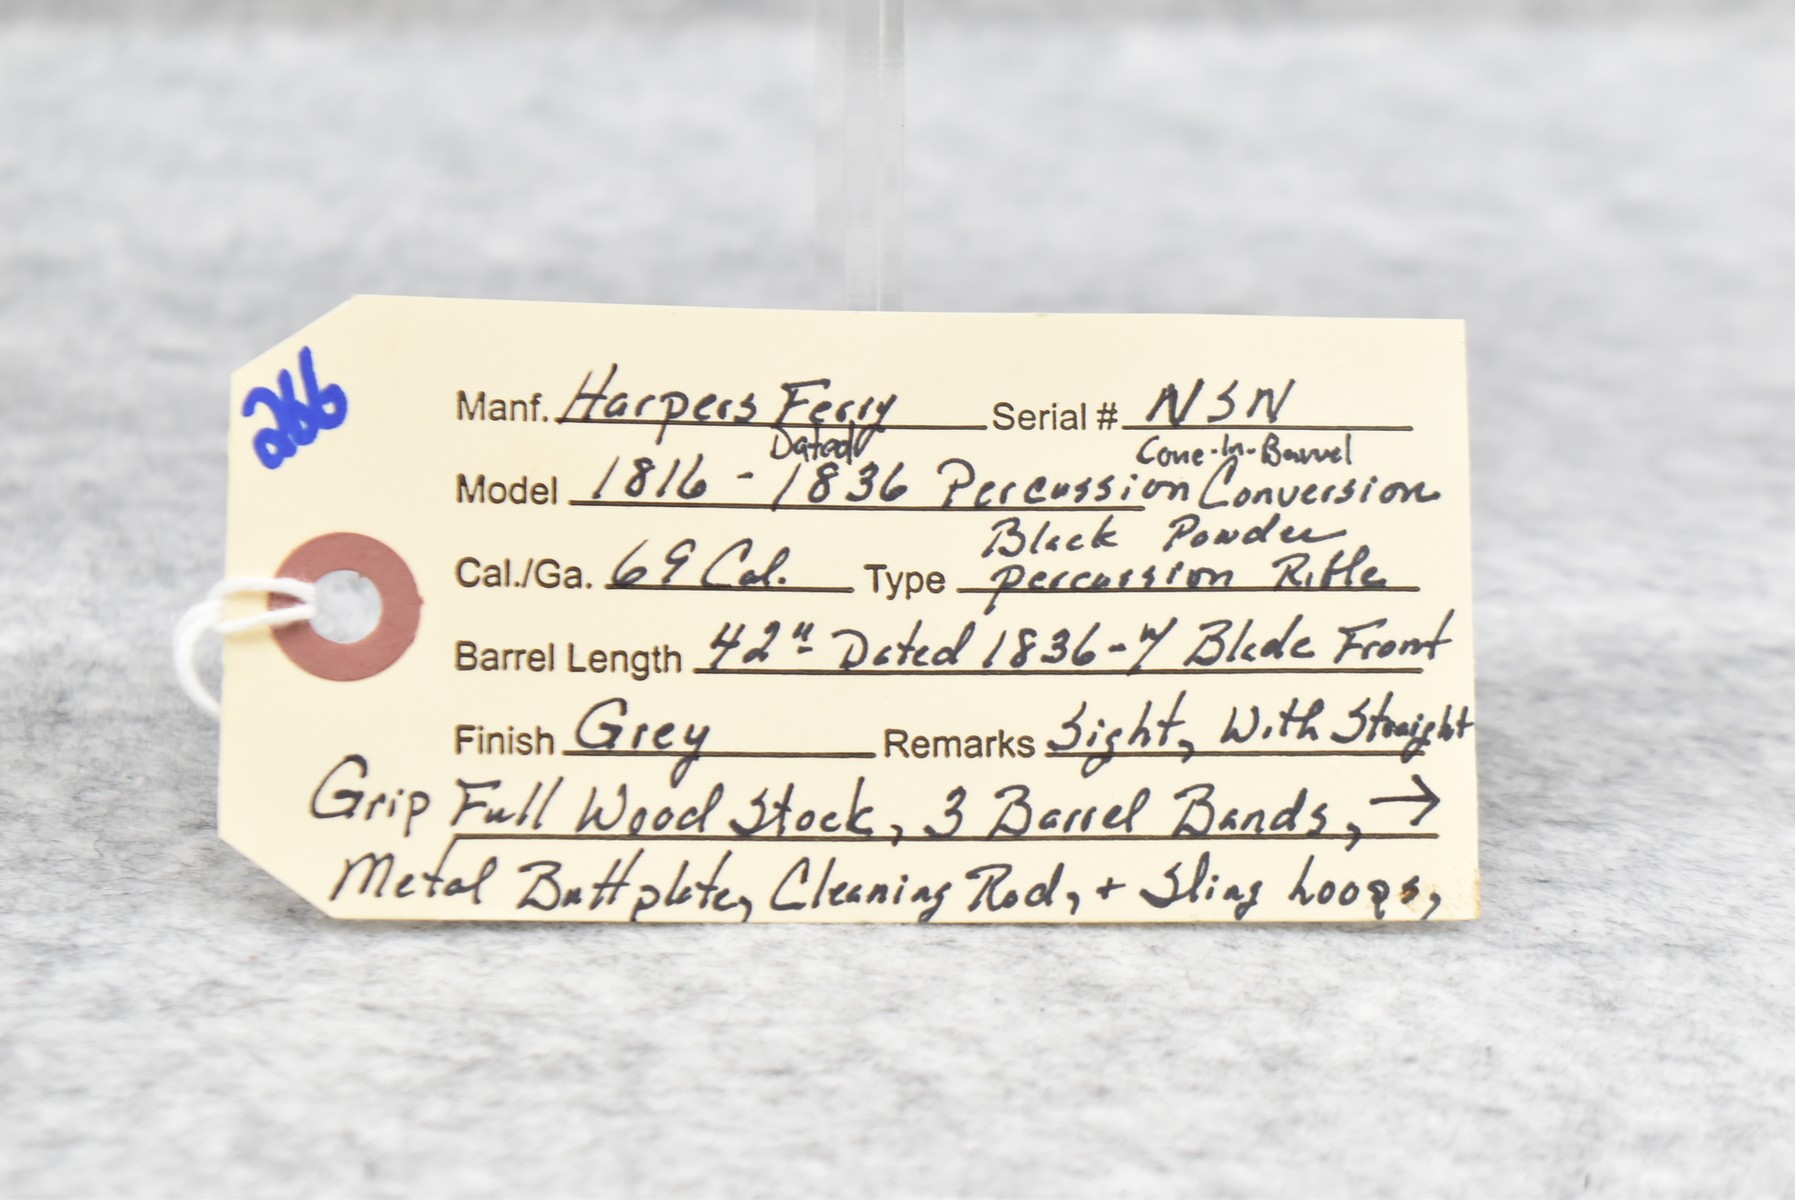 266
Manf. Harpers Ferry Serial # NSN
Dated Cone-In-Barrel
Model 1816 - 1836 Percussion Conversion
Black Powder
Cal./Ga. 69 Cal. Type percussion Rifle
Barrel Length 42" - Dated 1836 - w/ Blade Front
Finish Grey Remarks Sight, With Straight
Grip Full Wood Stock, 3 Barrel Bands, →
Metal Buttplate, Cleaning Rod, + Sling Loops,